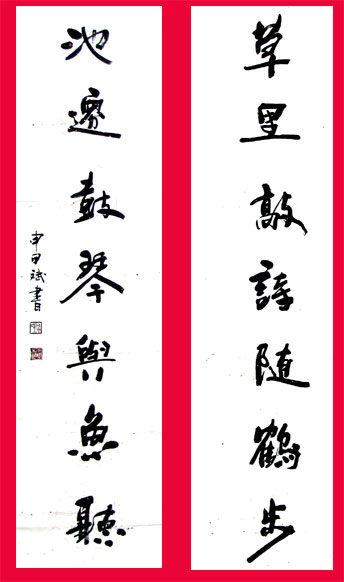 草里敲詩随鶴步
池邊鼓琴與魚聽
申甲斌書